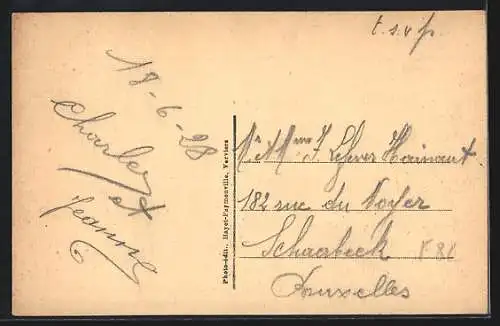 t.s.v.p.
18-6-28
Charles
et
Jeanne
Photo-édit., Hayot-Feymonville, Verviers
Mr & Mme J. Hainaut
182 rue du Noyer
Schaerbeek
Bruxelles